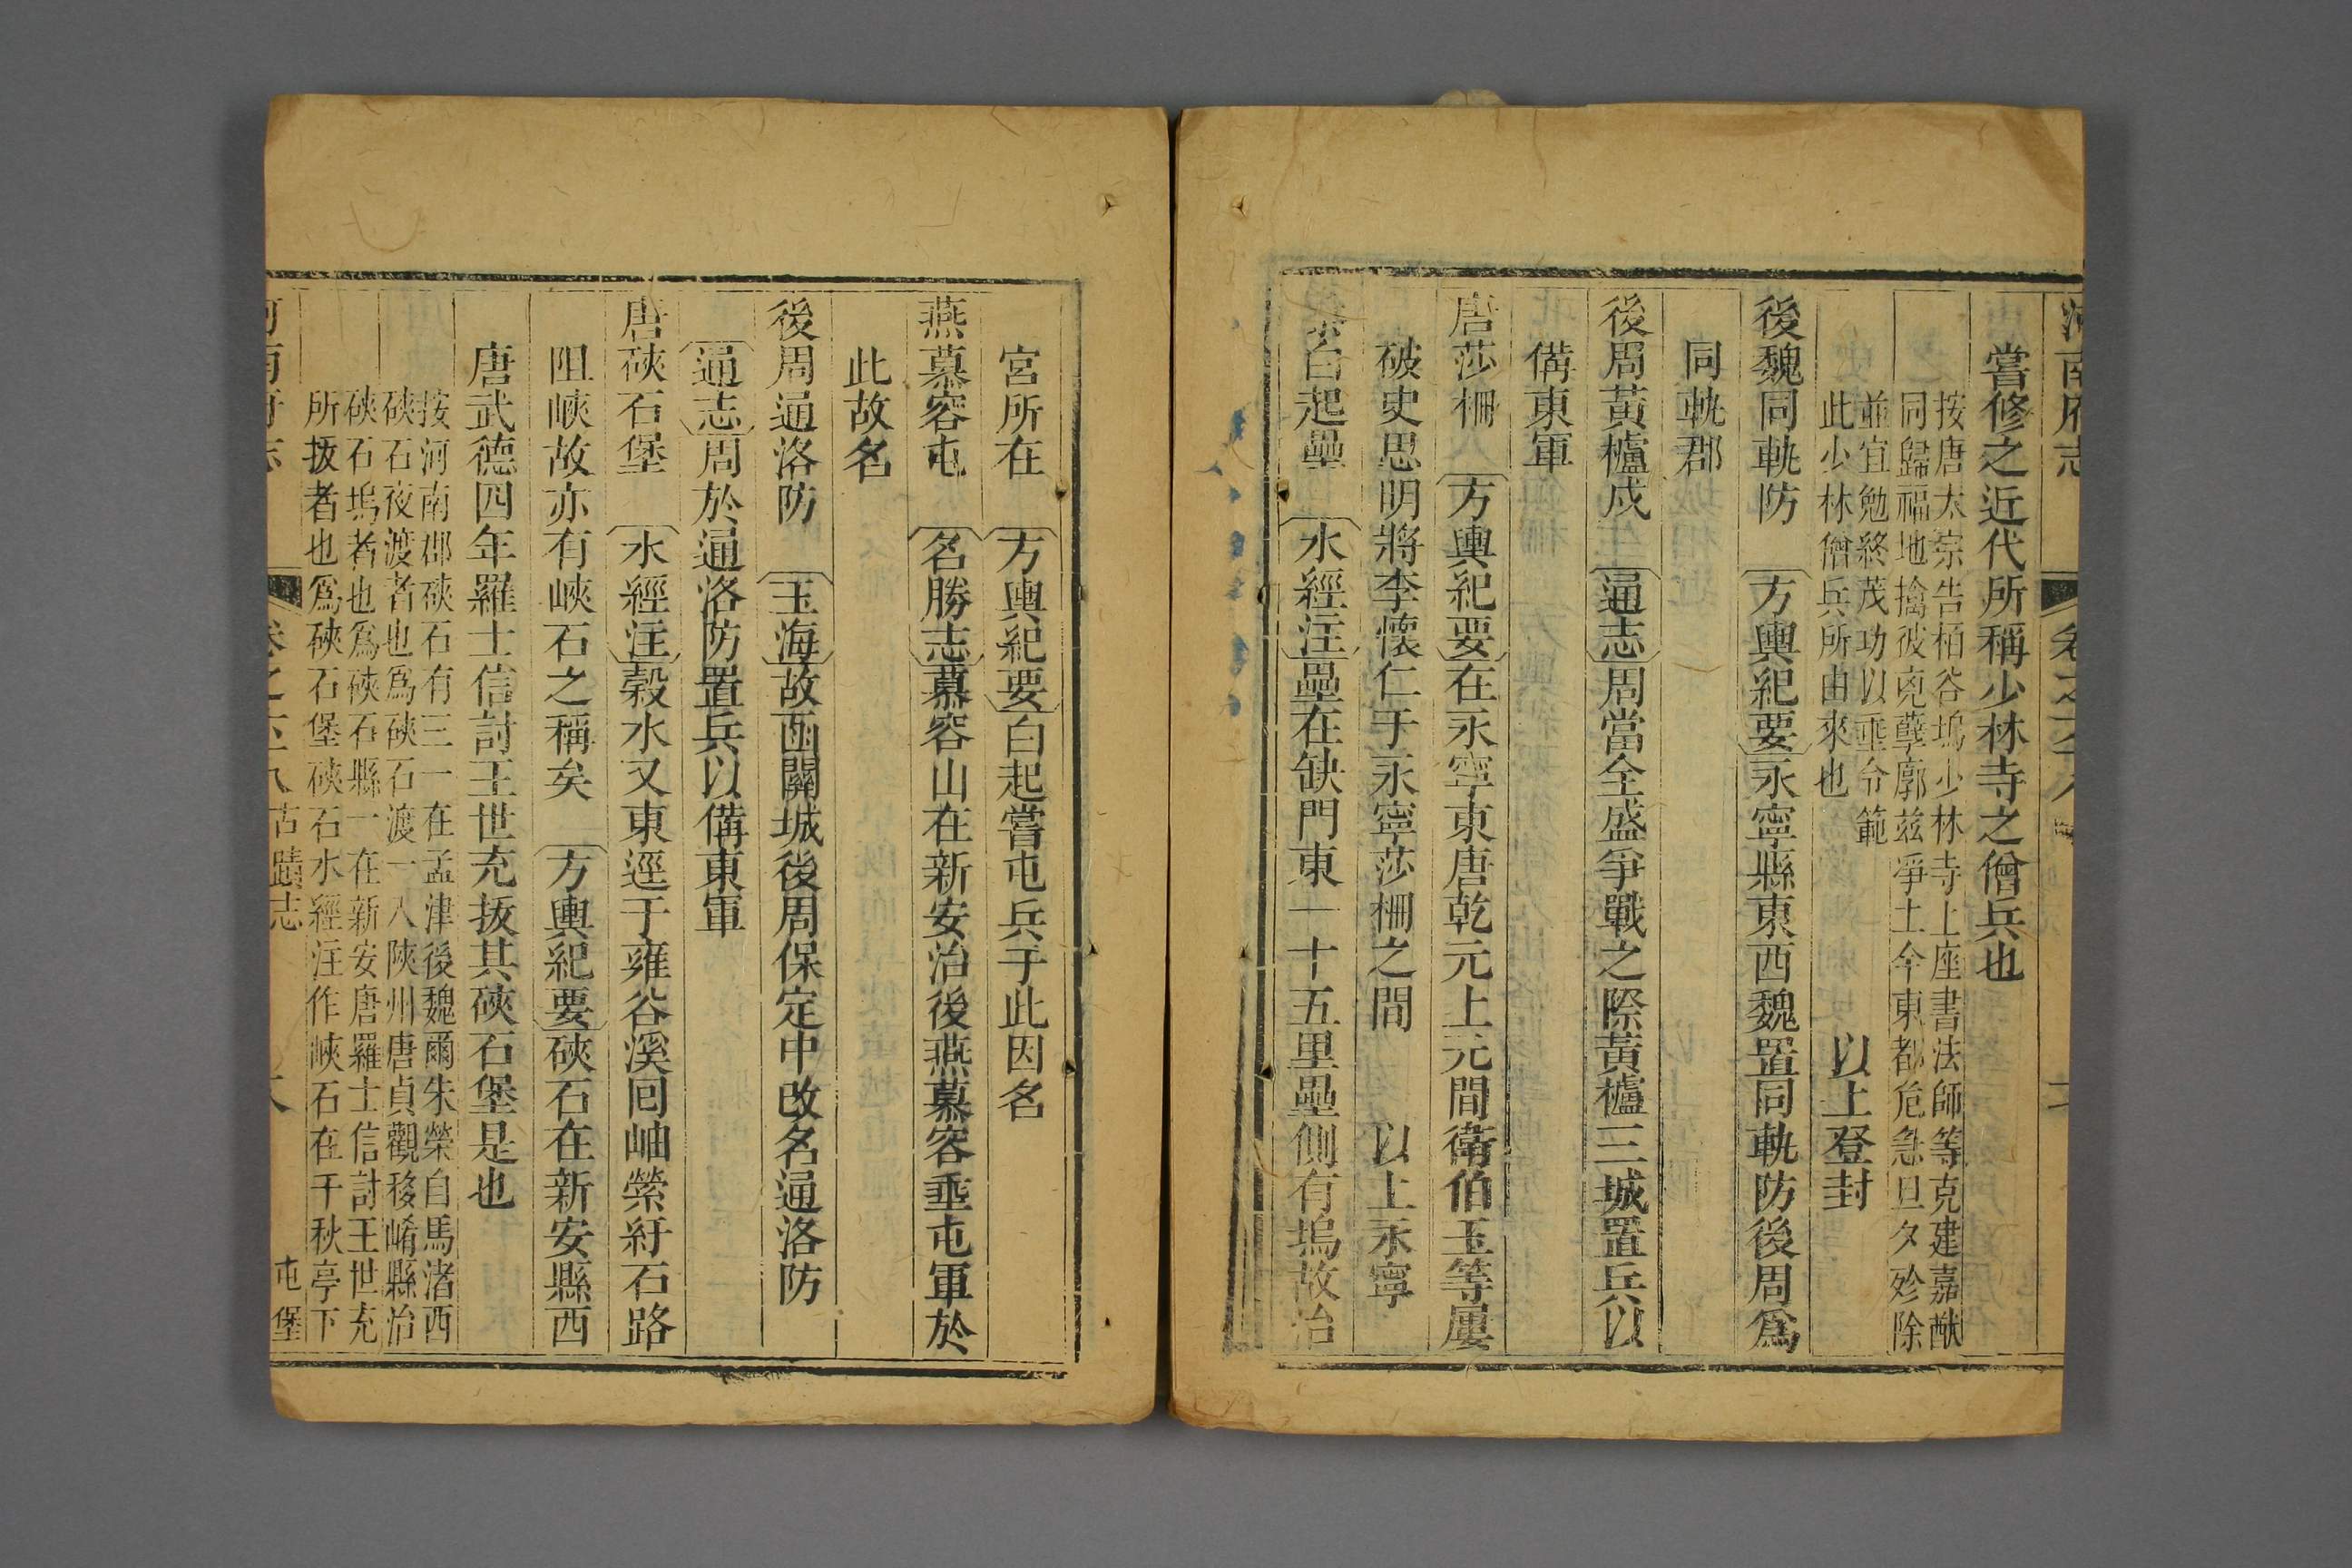 河南府志 卷之六八
嘗修之近代所稱少林寺之僧兵也
按唐太宗告柏谷塢少林寺上座書法師等克建嘉猷
同歸福地擒彼兇孽廓茲淨土今東都危急旦夕殄除
並宜勉終茂功以垂令範
此少林僧兵所由來也 以上登封
後魏同軌防 方輿紀要永寧縣東西魏置同軌防後周爲
同軌郡
後周黃櫨戍 通志周當全盛爭戰之際黃櫨三城置兵以
備東軍
唐莎柵 方輿紀要在永寧東唐乾元上元間衛伯玉等屢
破史思明將李懷仁于永寧莎柵之間 以上永寧
秦白起壘 水經注壘在缺門東一十五里壘側有塢故治
宮所在 方輿紀要白起嘗屯兵于此因名
燕慕容屯 名勝志慕容山在新安治後燕慕容垂屯軍於
此故名
後周通洛防 玉海故函關城後周保定中改名通洛防
通志周於通洛防置兵以備東軍
唐硤石堡 水經注穀水又東逕于雍谷溪囘岫縈紆石路
阻峽故亦有峽石之稱矣 方輿紀要硤石在新安縣西
唐武德四年羅士信討王世充拔其硤石堡是也
按河南郡硤石有三一在孟津後魏爾朱榮自馬渚西
硤石夜渡者也爲硤石渡一入陝州唐貞觀移崤縣治
硤石塢者也爲硤石縣一在新安唐羅士信討王世充
所拔者也爲硤石堡硤石水經注作峽石在千秋亭下
河南府志 卷之 古蹟志 屯堡